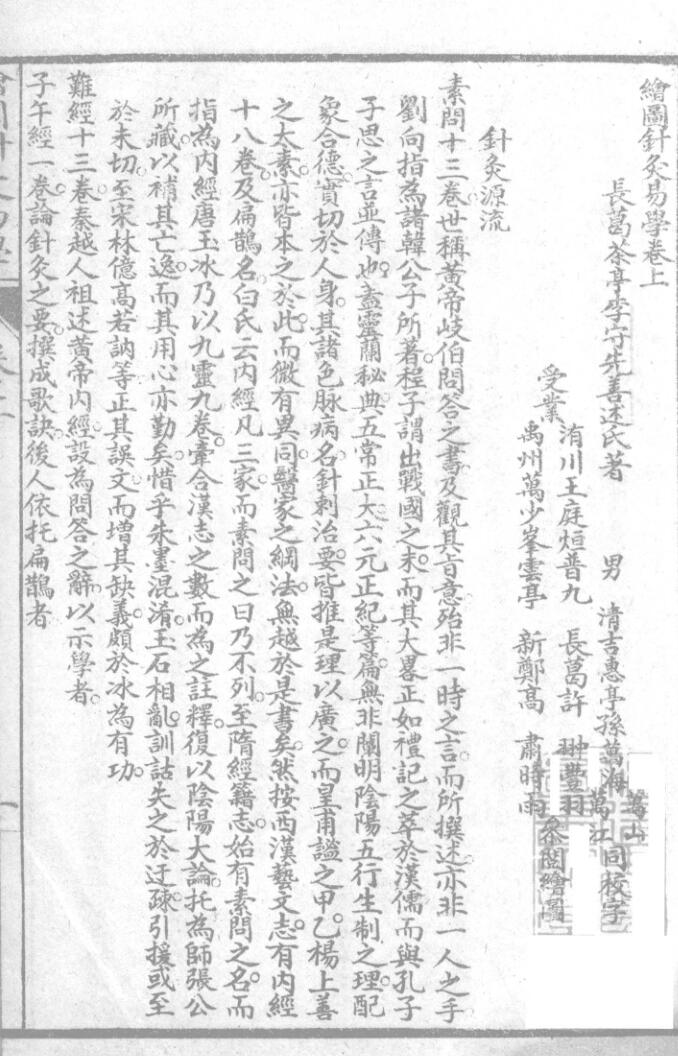 繪圖針灸易學卷上
長葛荼亭李守先善述氏著
男 清吉惠亭孫萬海 同校字
萬山
萬江
受業
洧川王庭烜普九 長葛許 翀豐羽
禹州萬少峯雲亭 新鄭高 肅時雨
叅閲繪圖
針灸源流
素問十三卷世稱黃帝岐伯問答之書及觀其㫖意殆非一時之言而所撰述亦非一人之手
劉向指為諸韓公子所著程子謂出戰國之末而其大畧正如禮記之萃於漢儒而與孔子
子思之言並傳也蓋靈蘭秘典五常正大六元正紀等篇無非闡明陰陽五行生制之理配
象合德實切於人身其諸色脉病名針刺治要皆推是理以廣之而皇甫謐之甲乙楊上善
之太素亦皆本之於此而微有異同醫家之綱法無越於是書矣然按西漢藝文志有內經
十八卷及扁鵲名白氏云內經凡三家而素問之曰乃不列至隋經籍志始有素問之名而
指為內經唐王冰乃以九靈九卷牽合漢志之數而為之註釋復以陰陽大論托為師張公
所藏以補其亡逸而其用心亦勤矣惜乎朱墨混淆玉石相亂訓詁失之於迂疎引援或至
於未切至宋林億高若訥等正其誤文而增其缺義頗於冰為有功
難經十三卷秦越人祖述黃帝內經設為問答之辭以示學者
子午經一卷論針灸之要撰成歌訣後人依托扁鵲者